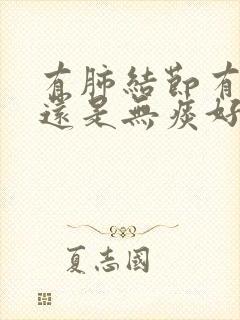 有肺結節有
還是無痰好
夏志國